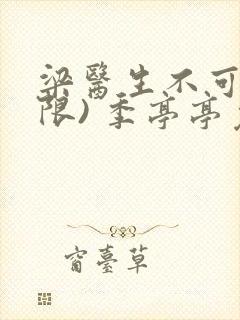 梁醫生不可
限）季亭亭
窗臺草